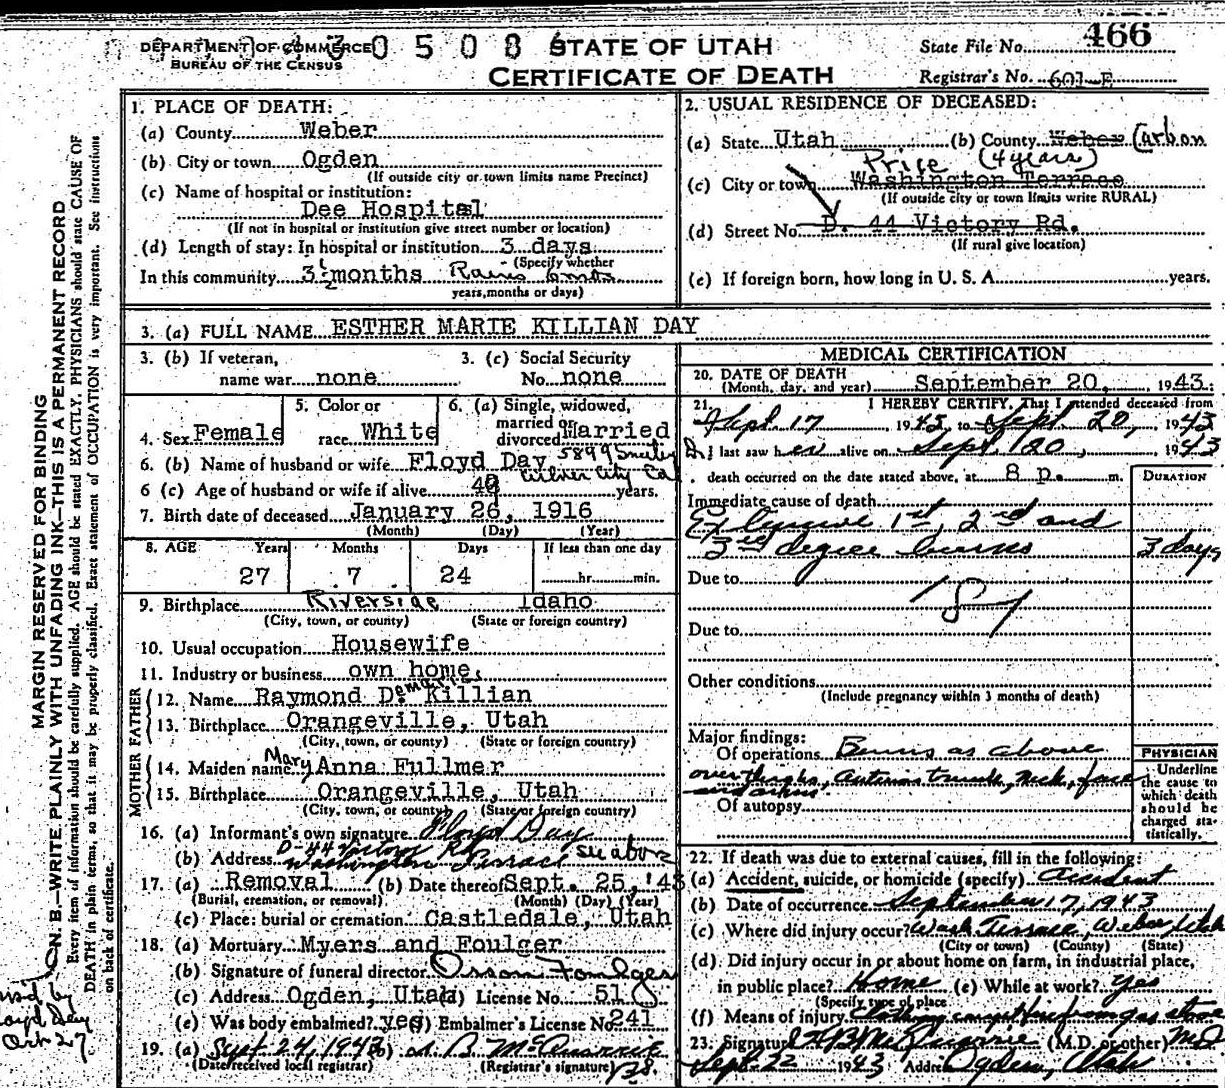 DEPARTMENT OF COMMERCE
BUREAU OF THE CENSUS
STATE OF UTAH
CERTIFICATE OF DEATH
State File No. 466
Registrar's No. 601-E
MARGIN RESERVED FOR BINDING
N. B.—WRITE PLAINLY WITH UNFADING INK—THIS IS A PERMANENT RECORD
Every item of information should be carefully supplied. AGE should be stated EXACTLY. PHYSICIANS should state CAUSE OF
DEATH in plain terms, so that it may be properly classified. Exact statement of OCCUPATION is very important. See instructions
on back of certificate.
1. PLACE OF DEATH:
(a) County Weber
(b) City or town Ogden
(If outside city or town limits name Precinct)
(c) Name of hospital or institution:
Dee Hospital
(If not in hospital or institution give street number or location)
(d) Length of stay: In hospital or institution 3 days
(Specify whether
In this community 3½ months
years, months or days)
2. USUAL RESIDENCE OF DECEASED:
(a) State Utah (b) County Weber Carbon
Price (4 years)
(c) City or town Washington Terrace
(If outside city or town limits write RURAL)
(d) Street No. D. 44 Victory Rd.
(If rural give location)
(e) If foreign born, how long in U. S. A. years.
3. (a) FULL NAME ESTHER MARIE KILLIAN DAY
3. (b) If veteran,
name war none
3. (c) Social Security
No. none
4. Sex Female
5. Color or
race White
6. (a) Single, widowed,
married or
divorced Married
6. (b) Name of husband or wife Floyd Day
5899
Culver City Cal
6 (c) Age of husband or wife if alive years.
7. Birth date of deceased January 26, 1916
(Month) (Day) (Year)
8. AGE Years Months Days If less than one day
27 7 24 hr. min.
9. Birthplace Riverside Idaho
(City, town, or county) (State or foreign country)
10. Usual occupation Housewife
11. Industry or business own home
FATHER
12. Name Raymond Killian
13. Birthplace Orangeville, Utah
(City, town, or county) (State or foreign country)
MOTHER
14. Maiden name Mary Anna Fullmer
15. Birthplace Orangeville, Utah
(City, town, or county) (State or foreign country)
16. (a) Informant's own signature Floyd Day
D-44 Victory Rd
(b) Address Washington Terrace see above
17. (a) Removal (b) Date thereof Sept. 25, '43
(Burial, cremation, or removal) (Month) (Day) (Year)
(c) Place: burial or cremation Castledale, Utah
18. (a) Mortuary Myers and Foulger
(b) Signature of funeral director Orson Foulger
(c) Address Ogden, Utah (d) License No. 51
(e) Was body embalmed? yes (f) Embalmer's License No. 241
19. (a) Sept 24, 1943 (b)
(Date received local registrar) (Registrar's signature)
MEDICAL CERTIFICATION
20. DATE OF DEATH
(Month, day, and year) September 20, 1943.
21. I HEREBY CERTIFY, That I attended deceased from
Sept. 17 1943, to Sept. 20, 1943
I last saw her alive on Sept. 20, 1943
death occurred on the date stated above, at 8 p. m.
DURATION
Immediate cause of death
1st, 2nd and
3rd degree burns 3 days
Due to
Due to
Other conditions
(Include pregnancy within 3 months of death)
Major findings:
Of operations Burns as above
over thighs, anterior trunk, neck, face
and arms.
Of autopsy
PHYSICIAN
Underline
the cause to
which death
should be
charged sta-
tistically.
22. If death was due to external causes, fill in the following:
(a) Accident, suicide, or homicide (specify) Accident
(b) Date of occurrence September 17, 1943
(c) Where did injury occur? Wash Terrace, Weber, Utah
(City or town) (County) (State)
(d) Did injury occur in or about home on farm, in industrial place,
in public place? Home (e) While at work? yes
(Specify type of place
(f) Means of injury Clothing caught fire from gas stove
23. Signature (M.D. or other) M.D.
Sept. 22 1943 Address Ogden, Utah